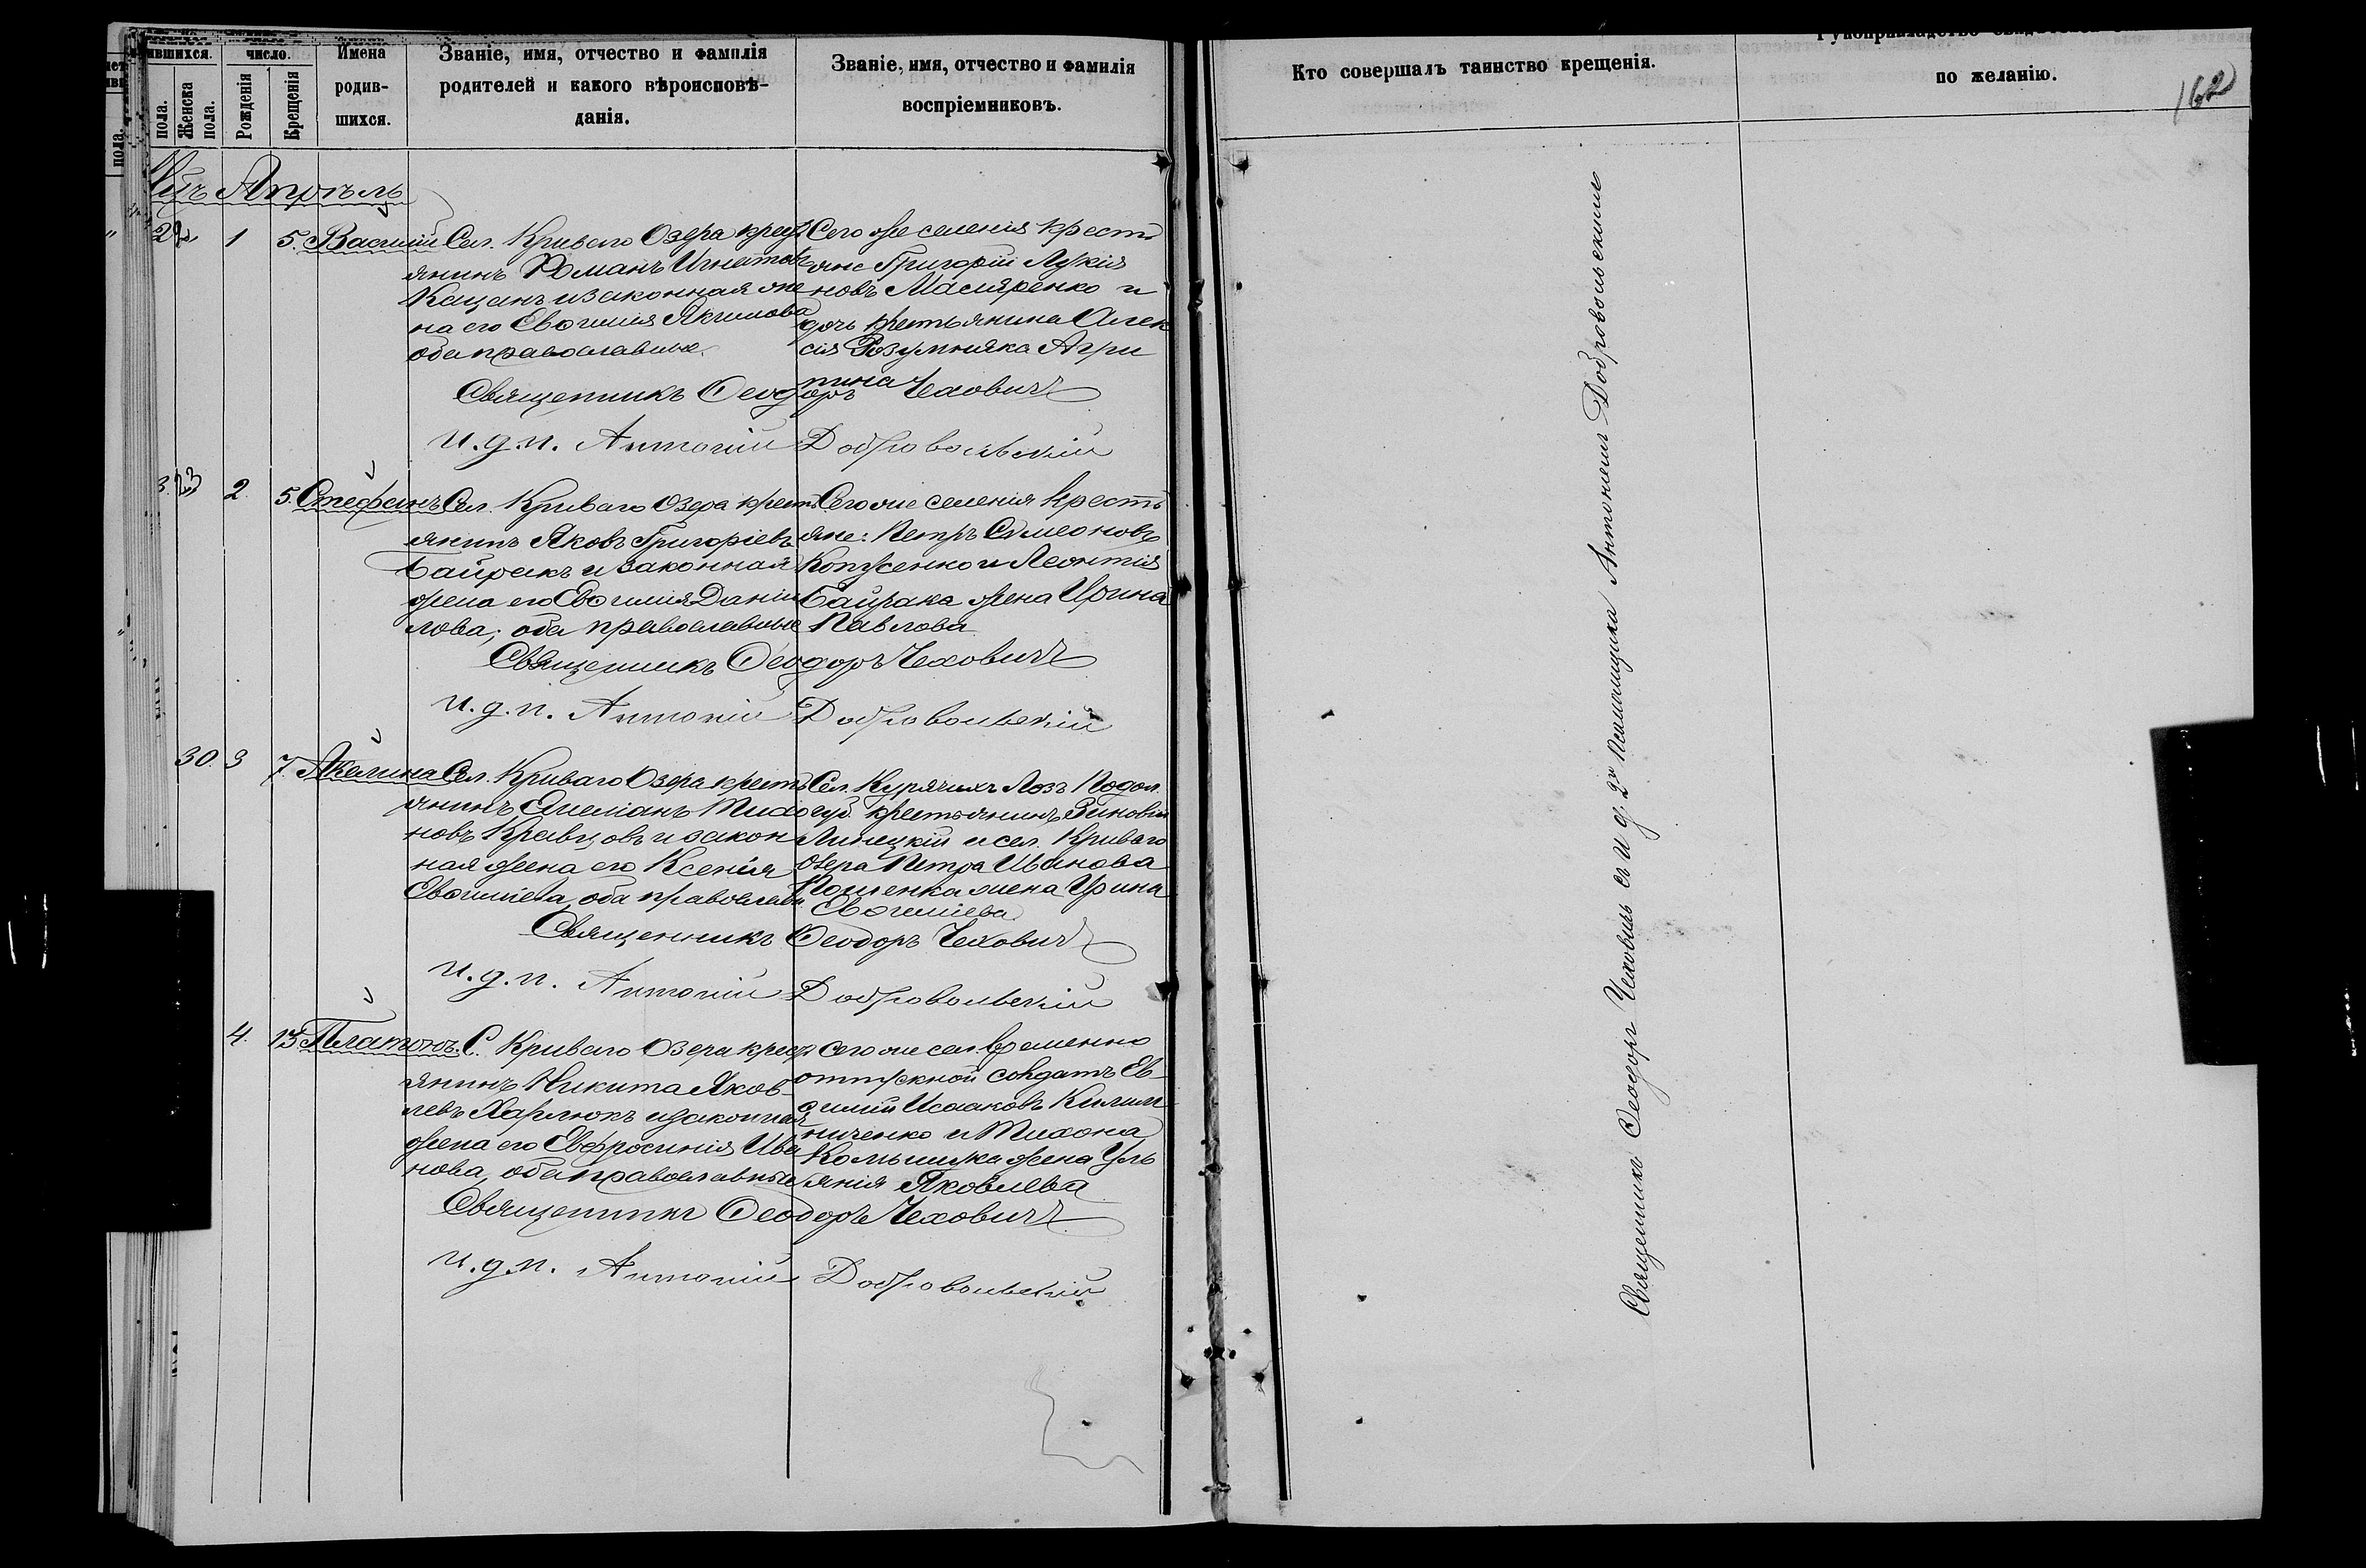 ившихся.
число.
Имена
родив-
шихся.
Званіе, имя, отчество и фамилія
родителей и какого вѣроисповѣ-
данія.
Званіе, имя, отчество и фамилія
воспріемниковъ.
пола.
Женска
пола.
Рожденія
Крещенія
пола.
Кто совершалъ таинство крещенія.
по желанію.
162
Мцъ Апрѣль
22 1 5. Василій
Сел. Криваго Озера крест
янинъ Романъ Игнатовъ
Кацанъ и законная же
на его Евѳимія Якимова
оба православные.
Сего же селенія кресть
яне Григорій Лукія
новъ Масляренко и
дочь крестьянина Алек
сія Розумняка Агри
пина
Священникъ Ѳеодоръ Чеховичъ
И. д. п. Антоній Добровольскій
23 2 5. Стефанъ
Сел. Криваго Озера кресть
янинъ Яковъ Григоріевъ
Байракъ и законная
жена его Евѳимія Даніи
лова, оба православные
Сего же селенія кресть
яне: Петръ Симеоновъ
Копусенко и Леонтія
Байрака жена Ирина
Павлова
Священникъ Ѳеодоръ Чеховичъ
И. д. п. Антоній Добровольскій
30. 3 7. Акелина
Сел. Криваго Озера кресть
янинъ Тихо
новъ Кравцовъ и закон
ная жена его Ксенія
Евѳиміева, оба православн.
Сел. Курячихъ Лозъ Подол.
губ. крестьянинъ Зиновій
Липецкій и сел. Криваго
Озера Петра Иванова
жена Ирина
Евѳиміева
Священникъ Ѳеодоръ Чеховичъ
И. д. п. Антоній Добровольскій
4. 13 Платонъ.
С. Криваго Озера крест
янинъ Никита Яков-
левъ Харлюкъ и законная
жена его Евфросинія Ива
нова, оба православные
Сего же сел. временно
отпускной солдатъ Ев-
ѳимій Исааковъ Килим
ниченко и Тихона
жена Уль
янія Яковлева
Священникъ Ѳеодоръ Чеховичъ
И. д. п. Антоній Добровольскій
Священникъ Ѳеодоръ Чеховичъ съ И. д. 2го Псаломщика Антоніемъ Добровольскимъ